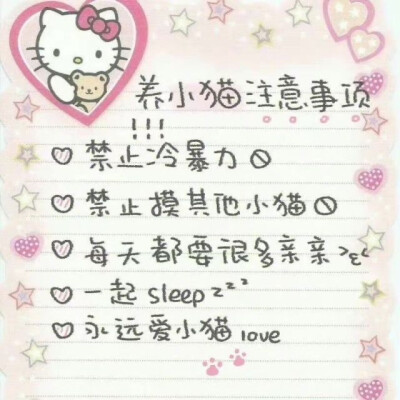 养小猫注意事项
!!!
禁止冷暴力
禁止摸其他小猫
每天都要很多亲亲
一起 sleep zzz
永远爱小猫 love